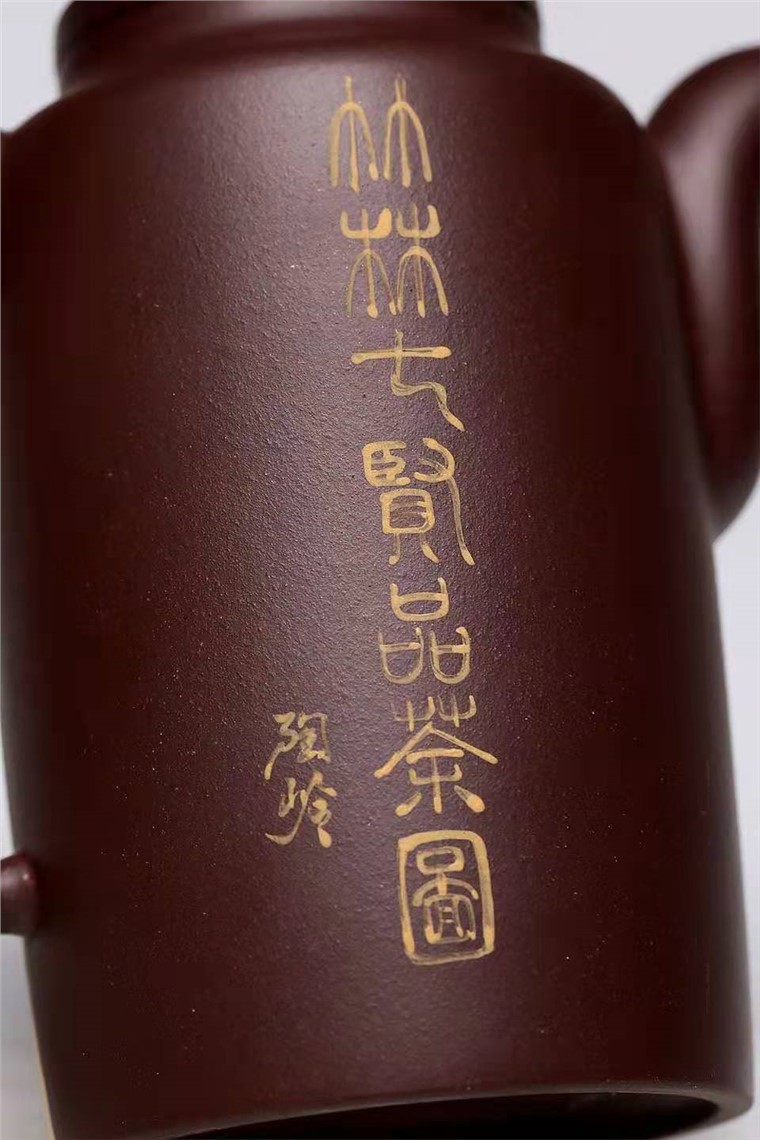 竹林七賢品茶圖
陶岭